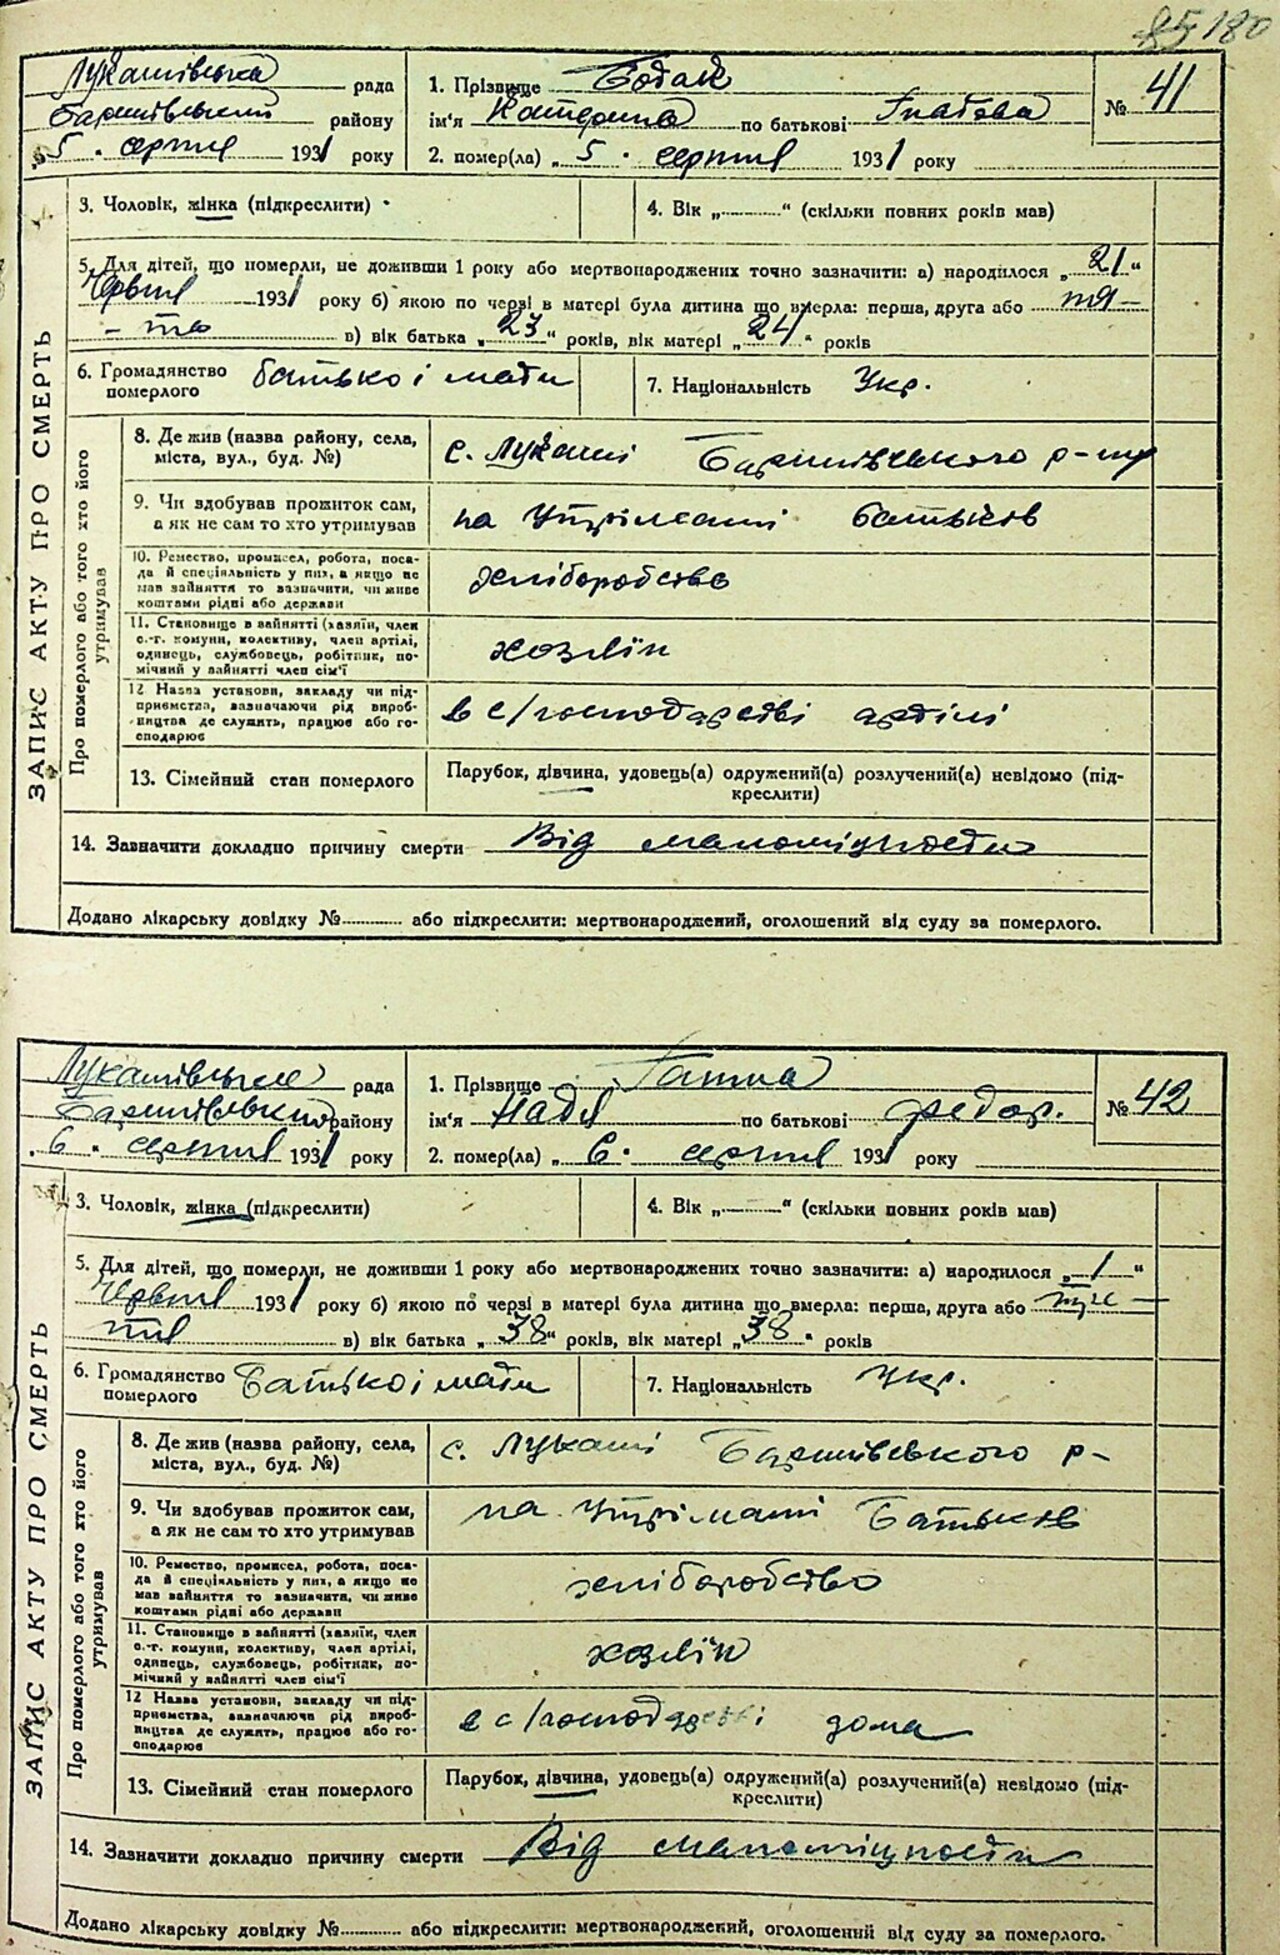 180
Лукашівська рада
Баришівський району
„5“ серпня 1931 року
1. Прізвище Бодак
ім'я Катерина по батькові Гнатова
2. помер(ла) „5“ серпня 1931 року
№ 41
3. Чоловік, жінка (підкреслити)
4. Вік „ “ (скільки повних років мав)
5. Для дітей, що померли, не доживши 1 року або мертвонароджених точно зазначити: а) народилося „21“
Червня 1931 року б) якою по черзі в матері була дитина що вмерла: перша, друга або пя-
-та в) вік батька „23“ років, вік матері „24“ років
6. Громадянство
померлого батько і мати
7. Національність Укр.
ЗАПИС АКТУ ПРО СМЕРТЬ
Про померлого або того хто його
утримував
8. Де жив (назва району, села,
міста, вул., буд. №)
с. Лукаші Баришівського р-ну
9. Чи здобував прожиток сам,
а як не сам то хто утримував
на утріманні батьків
10. Ремество, промисел, робота, поса-
да й спеціяльність у них, а якщо не
мав зайняття то зазначити, чи живе
коштами рідні або держави
хліборобство
11. Становище в зайнятті (хазяїн, член
с.-г. комуни, колективу, член артілі,
одинець, службовець, робітник, по-
мічний у зайнятті член сім'ї
хозяїн
12 Назва установи, закладу чи під-
приємства, зазначаючи рід вироб-
ництва де служить, працює або го-
сподарює
в с/господарстві артілі
13. Сімейний стан померлого
Парубок, дівчина, удовець(а) одружений(а) розлучений(а) невідомо (під-
креслити)
14. Зазначити докладно причину смерти Від маломіцности
Додано лікарську довідку № або підкреслити: мертвонароджений, оголошений від суду за померлого.
Лукашівська рада
Баришівського району
„6“ серпня 1931 року
1. Прізвище Ганна
ім'я Надя по батькові Федор.
2. помер(ла) „6“ серпня 1931 року
№ 42
3. Чоловік, жінка (підкреслити)
4. Вік „ “ (скільки повних років мав)
5. Для дітей, що померли, не доживши 1 року або мертвонароджених точно зазначити: а) народилося „1“
Червня 1931 року б) якою по черзі в матері була дитина що вмерла: перша, друга або
в) вік батька „38“ років, вік матері „38“ років
6. Громадянство
померлого Батько і мати
7. Національність Укр.
ЗАПИС АКТУ ПРО СМЕРТЬ
Про померлого або того хто його
утримував
8. Де жив (назва району, села,
міста, вул., буд. №)
с. Лукаші Баришівського р-
9. Чи здобував прожиток сам,
а як не сам то хто утримував
на утріманні Батьків
10. Ремество, промисел, робота, поса-
да й спеціяльність у них, а якщо не
мав зайняття то зазначити, чи живе
коштами рідні або держави
хліборобство
11. Становище в зайнятті (хазяїн, член
с.-г. комуни, колективу, член артілі,
одинець, службовець, робітник, по-
мічний у зайнятті член сім'ї
хозяїн
12 Назва установи, закладу чи під-
приємства, зазначаючи рід вироб-
ництва де служить, працює або го-
сподарює
в с/господарстві дома
13. Сімейний стан померлого
Парубок, дівчина, удовець(а) одружений(а) розлучений(а) невідомо (під-
креслити)
14. Зазначити докладно причину смерти Від маломіцности
Додано лікарську довідку № або підкреслити: мертвонароджений, оголошений від суду за померлого.